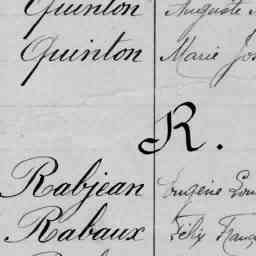 Quinton Auguste
Quinton Marie
R.
Rabjean Eugène
Rabaux Félix